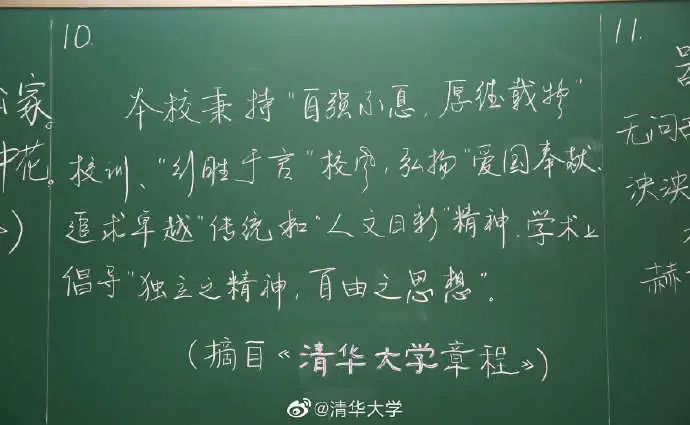 10.
本校秉持"自强不息,厚德载物"
校训、"行胜于言"校风,弘扬"爱国奉献、
追求卓越"传统和"人文日新"精神.学术上
倡导"独立之精神,自由之思想"。
(摘自《清华大学章程》)
家。
花。
)
11.
无问
泱泱
赫
@清华大学